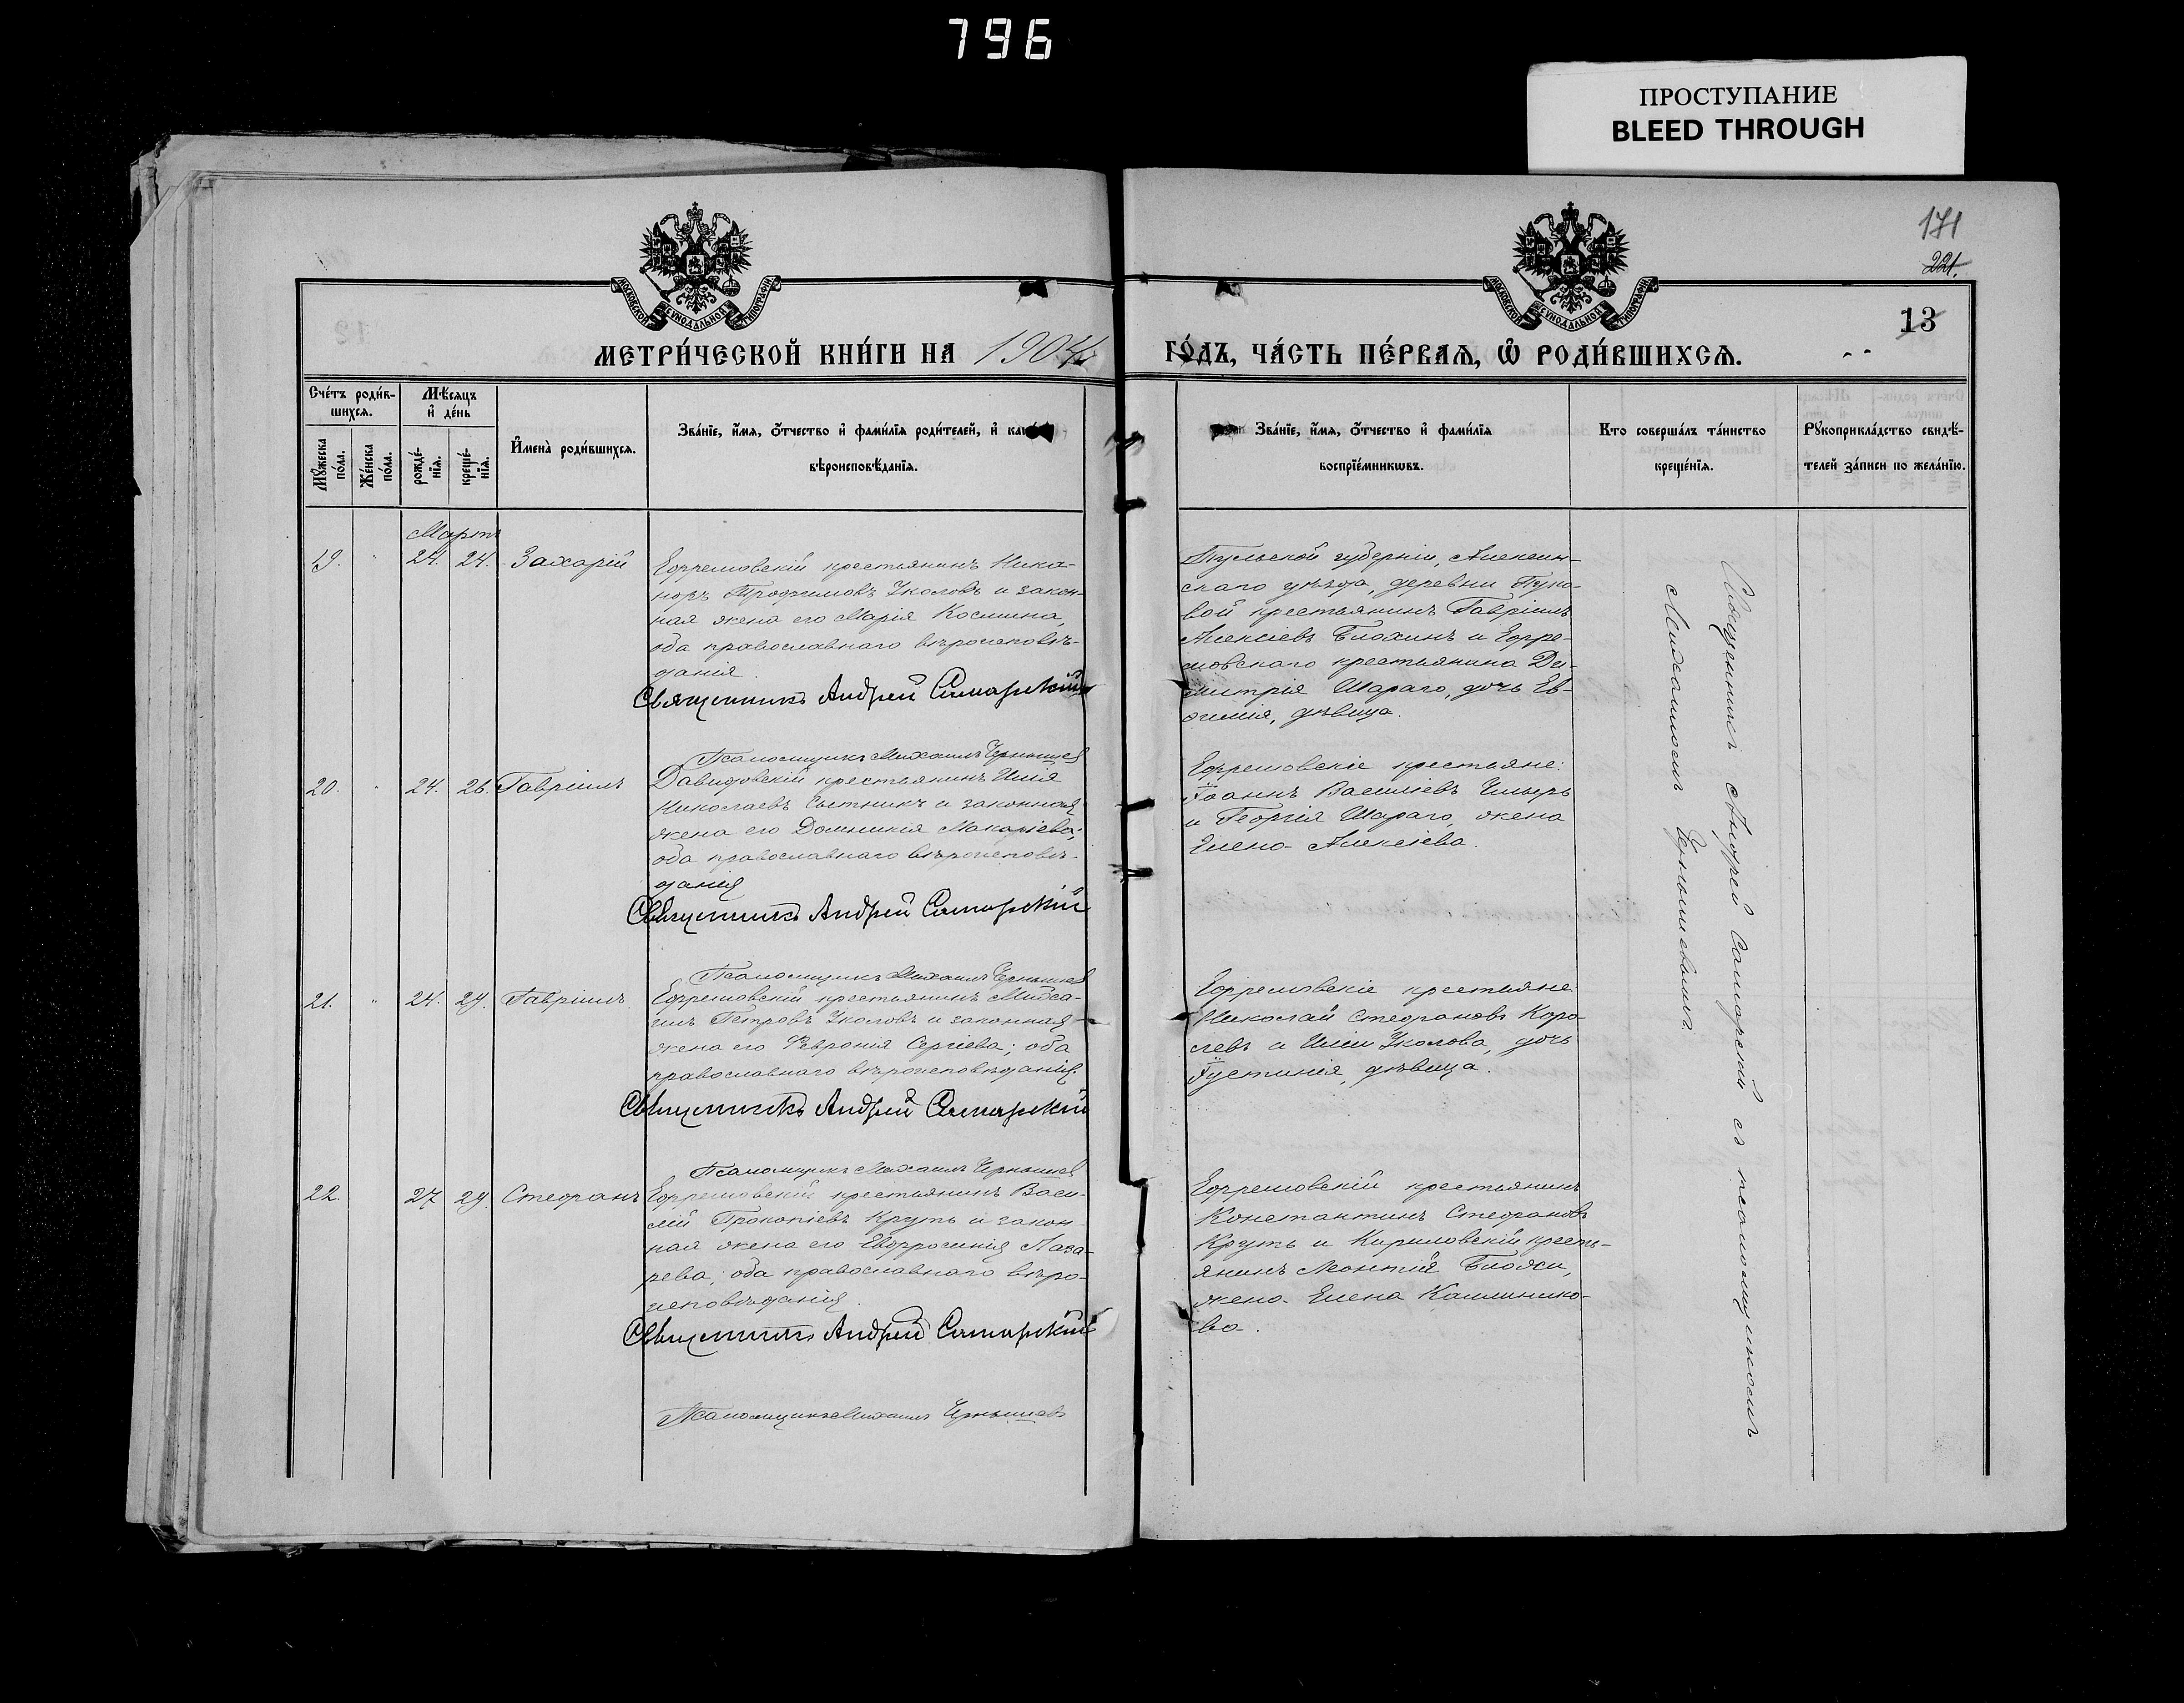 796
ПРОСТУПАНИЕ
BLEED THROUGH
171
221.
13
МОСКОВСКОЙ СѴНОДАЛЬНОЙ ТИПОГРАФІИ
МОСКОВСКОЙ СѴНОДАЛЬНОЙ ТИПОГРАФІИ
МЕТРИ́ЧЕСКОЙ КНИ́ГИ НА 1904
ГО́ДЪ, ЧА́СТЬ ПЕ́РВАЯ, Ѡ РОДИ́ВШИХСЯ.
Сче́тъ роди́в-
шихся.
Мѣ́сяцъ
и҆ де́нь
Мꙋ́жеска
по́ла.
Же́нска
по́ла.
рожде́-
нїя.
креще́-
нїя.
И҆мена̀ роди́вшихся.
Зва́нїе, и҆́мя, ѻ҆́тчество и҆ фами́лїя роди́телей, и҆ как
вѣроисповѣ́данїя.
Зва́нїе, и҆́мя, ѻ҆́тчество и҆ фами́лїя
воспрїе́мникѡвъ.
Кто соверша́лъ та́инство
креще́нїя.
Рꙋкоприкла́дство свидѣ́-
телей за́писи по жела́нїю.
Мартъ
19. " 24. 24. Захарій
Ефремовскій крестьянинъ Ника-
норъ Трофимовъ Уколовъ и закон-
ная жена его Марія Космина,
оба православнаго вѣроисповѣ-
данія.
Священникъ Андрей Самарскій
Псаломщикъ Михаилъ Чернышев
Тульской губерніи, Алексин-
скаго уѣзда, деревни Пуко-
вой крестьянинъ Гавріилъ
Алексіевъ Блохинъ и Ефре-
мовскаго крестьянина Ди-
митрія Шараго, дочь Ев-
фимія, дѣвица.
20. " 24. 26. Гавріилъ
Давидовскій крестьянинъ Илія
Николаевъ Сытникъ и законная
жена его Домникія Макаріева;
оба православнаго вѣроисповѣ-
данія
Священникъ Андрей Самарскій
Псаломщикъ Михаилъ Чернышев
Ефремовскіе крестьяне:
Іоаннъ Василіевъ Чмырь
и Георгія Шараго, жена
Елена Алексіева.
21. " 24. 29. Гавріилъ
Ефремовскій крестьянинъ Миса-
илъ Петровъ Уколовъ и законная
жена его Февронія Сергіева; оба
православнаго вѣроисповѣданія.
Священникъ Андрей Самарскій
Псаломщикъ Михаилъ Чернышев
Ефремовскіе крестьяне:
Николай Стефановъ Коро-
левъ и Иліи Уколова, дочь
Іустинія, дѣвица.
22. 27 29. Стефанъ
Ефремовскій крестьянинъ Васи-
лій Прокопіевъ Круть и закон-
ная жена его Евфросинія Лаза-
рева; оба православнаго вѣро-
исповѣданія.
Священникъ Андрей Самарскій
Псаломщикъ Михаилъ Чернышевъ
Ефремовскій крестьянинъ
Константинъ Стефановъ
Круть и Кириловскій кресть-
янинъ Леонтія
жена Елена Калинико-
ва.
Священникъ Андрей Самарскій съ псаломщикомъ
Михаиломъ Чернышевымъ.